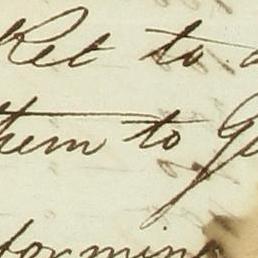 Ret to
them to Ge
forming